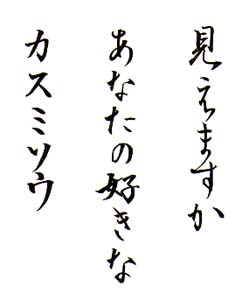 見えますか
あなたの好きな
カスミソウ